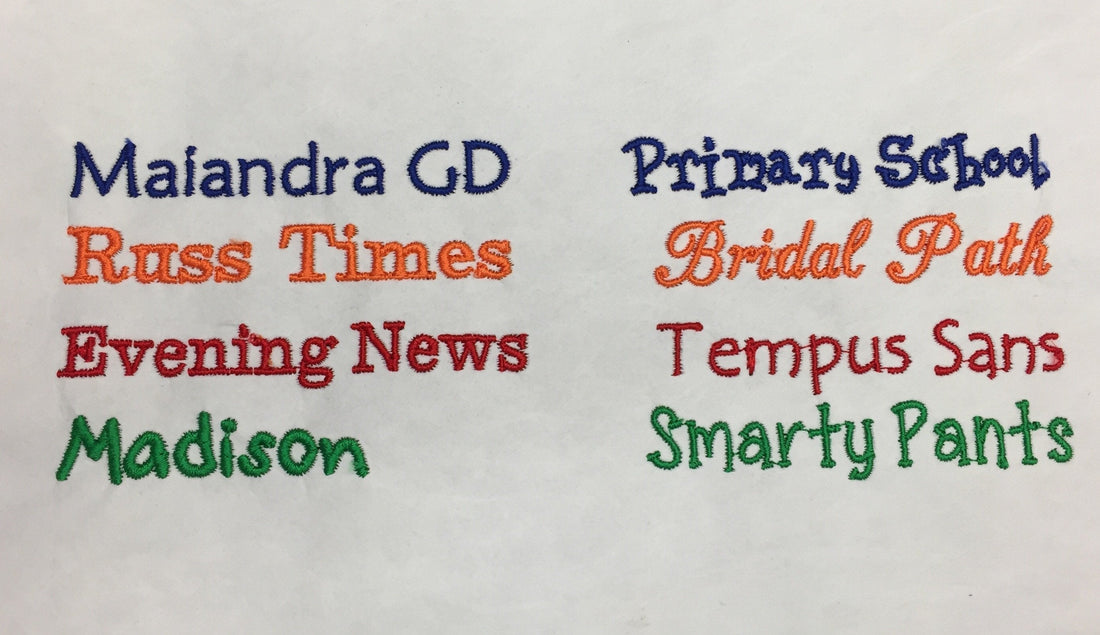 Maiandra GD
Russ Times
Evening News
Madison
Primary School
Bridal Path
Tempus Sans
Smarty Pants